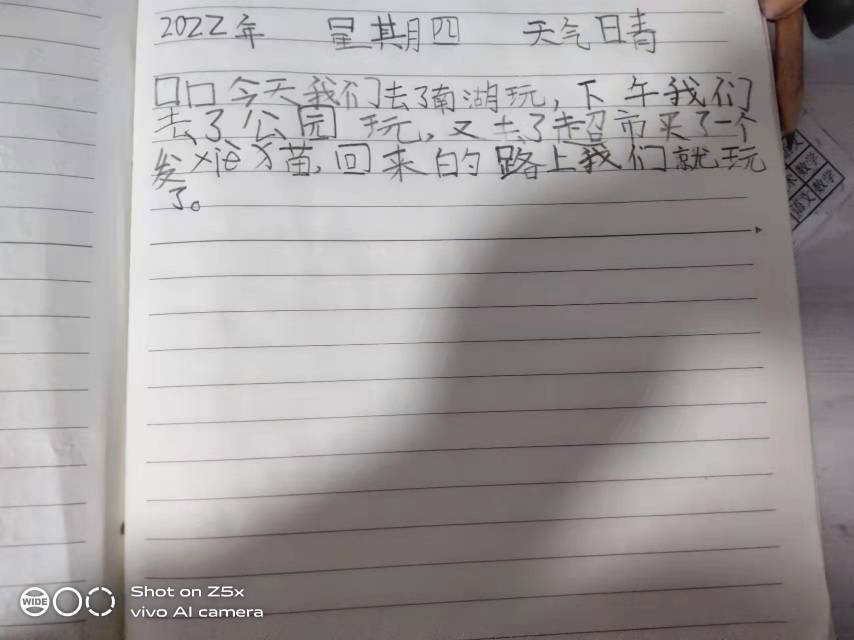 2022年 星期四 天气日青
口口今天我们去了南湖玩，下午我们
去了公园玩，又去了超市买了一个
发xiè犭苗，回来的路上我们就玩
了。
数学
语文 数学
WIDE
Shot on Z5x
vivo AI camera